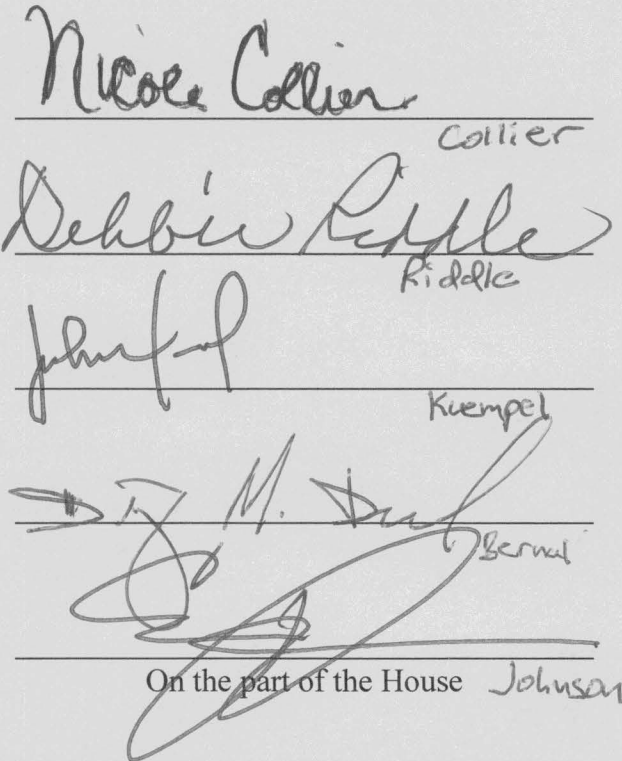 Nicole Collier
Collier
Debbie Riddle
Riddle
John
Kuempel
M.
Bernal
On the part of the House Johnson